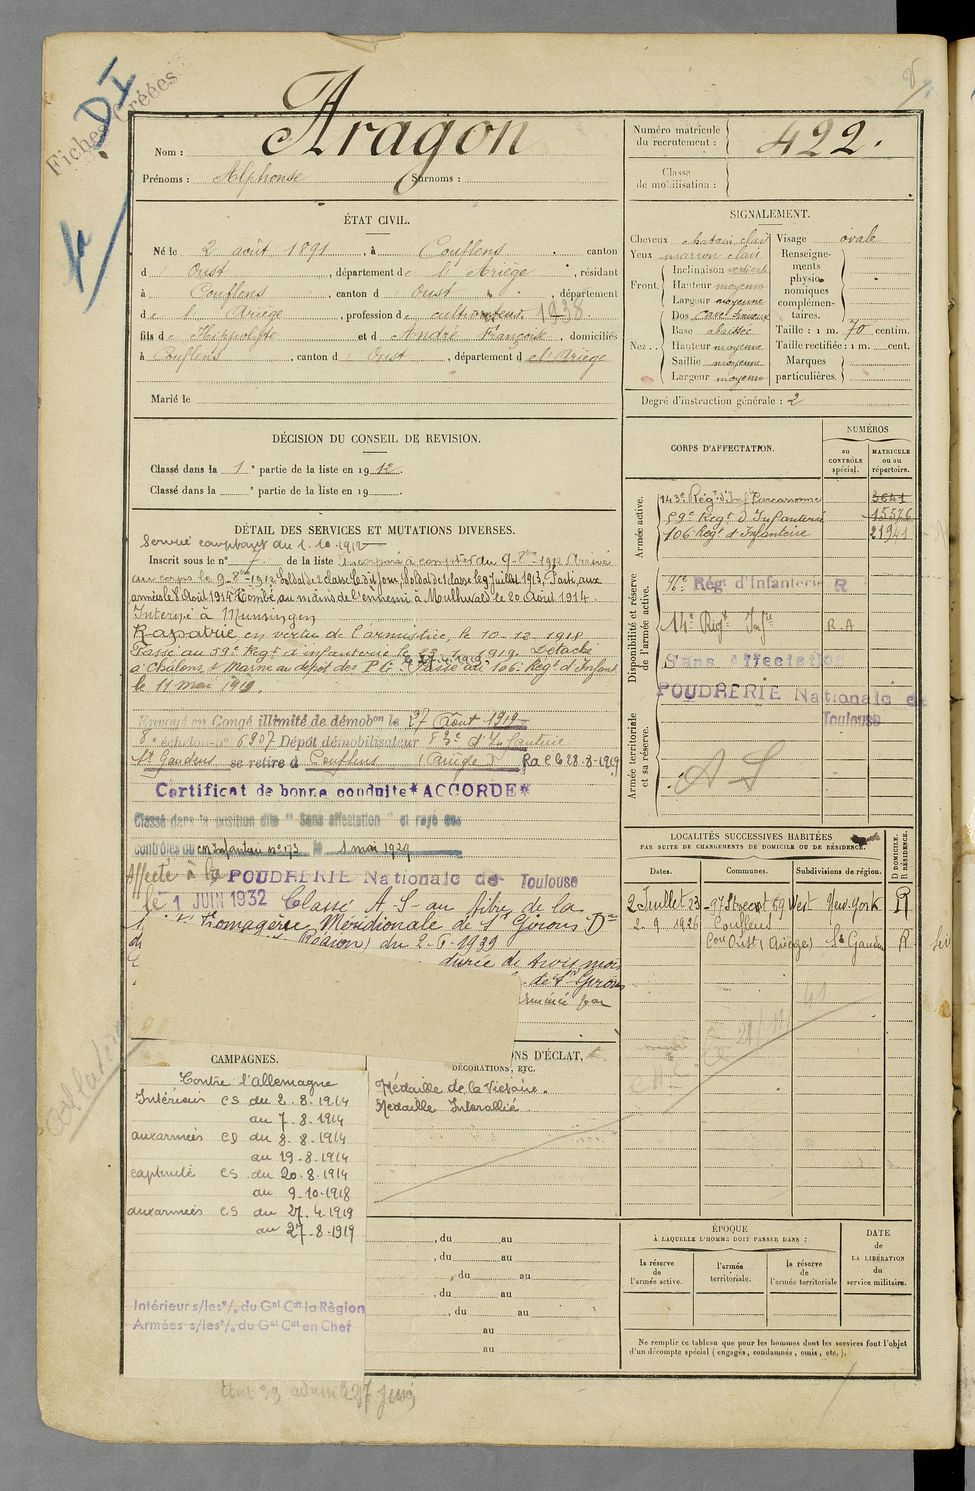 Fiches créées
DI
Nom : Aragon
Prénoms : Alphonse Surnoms :
Numéro matricule du recrutement : 422.
Classe de mobilisation :
ÉTAT CIVIL.
Né le 2 août 1891, à Couflens canton
d Oust, département de l'Ariège, résidant
à Couflens, canton d Oust, département
de l'Ariège, profession de cultivateur 1938
fils de Hippolyte et d André Françoise, domiciliés
à Couflens, canton d Oust, département d el'Ariège
Marié le
SIGNALEMENT.
Cheveux chatain clair
Yeux marron clair
Front. Inclinaison verticale
Hauteur moyenne
Largeur moyenne
Nez. Dos
Base abaissée
Hauteur moyenne
Saillie moyenne
Largeur moyenne
Visage ovale
Renseignements physionomiques complémentaires.
Taille : 1 m. 70 centim.
Taille rectifiée : 1 m. cent.
Marques particulières.
Degré d'instruction générale : 2
DÉCISION DU CONSEIL DE REVISION.
Classé dans la 1e partie de la liste en 1912.
Classé dans la e partie de la liste en 19 .
DÉTAIL DES SERVICES ET MUTATIONS DIVERSES.
Service comptant du 1.10.1912
Inscrit sous le n° 7 de la liste Incorporé à compter du 9-8bre-1912 Arrivé
au corps le 9-8bre-1912 Soldat de 2 classe le dit jour, Soldat de 1 classe le 9 juillet 1913. Parti aux
armées le 8 Août 1914 Tombé au mains de l'ennemi à Mulhwald le 20 Août 1914.
Interné à Munsingen
Rapatrié en vertu de l'armistice, le 10-12-1918
Passé au 59e Regt d'infanterie le 23.1.1919. Détaché
à Châlons s/ Marne au dépôt des P.G. Passé au 106e Regt d'Infant
le 11 mai 1919.
Envoyé en Congé illimité de démobon le 27 Août 1919
8e échelon n° 6307 Dépôt démobilisateur d'Infanterie
St Gaudens se retire à Couflens (Ariège) Ra C le 28.8.1919
Certificat de bonne conduite *ACCORDÉ*
Classé dans la position dite "Sans affectation" et rayé des
contrôles du cm Infanterie n° 173 le 1 mai 1929
Affecté à la POUDRERIE Nationale de Toulouse
le 1 JUIN 1932 Classé A.S. au titre de la
Fromagerie Méridionale de St Girons
Région) du 2-6-1939
durée de trois mois
de St Girons
CORPS D'AFFECTATION.
NUMÉROS
au CONTRÔLE spécial.
MATRICULE ou au répertoire.
Armée active.
143e Régt d'Inf Carcassonne 3641
59e Regt d'Infanterie 15576
106 Regt d'Infanterie 21941
Disponibilité et réserve de l'armée active.
96e Rég d'Infanterie R
14e Régt Infie R.A
Sans Affectation
POUDRERIE Nationale de Toulouse
Armée territoriale et sa réserve.
AS
LOCALITÉS SUCCESSIVES HABITÉES
PAR SUITE DE CHANGEMENTS DE DOMICILE OU DE RÉSIDENCE.
Dates.
Communes.
Subdivisions de région.
D DOMICILE. R RÉSIDENCE.
2 Juillet 23 West New-York R
2.9.1926 Couflens
Con Oust (Ariège) St Gaudens R
CAMPAGNES.
Contre l'allemagne
Intérieur CS du 2.8.1914
au 7.8.1914
aux armées CD du 8.8.1914
au 19.8.1914
captivité CS du 20.8.1914
au 9.10.1918
aux armées CS du 27.4.1919
au 27.8.1919
Intérieur s/les °/o du Gal Cdt la Région
Armées s/les °/o du Gal Cdt en Chef
NS D'ÉCLAT,
DÉCORATIONS, ETC.
Médaille de la Victoire.
Médaille Interallié
, du au
, du au
, du au
, du au
, du au
au
au
ÉPOQUE
À LAQUELLE L'HOMME DOIT PASSER DANS :
la réserve de l'armée active.
l'armée territoriale.
la réserve de l'armée territoriale
DATE de LA LIBÉRATION du service militaire.
Ne remplir ce tableau que pour les hommes dont les services font l'objet
d'un décompte spécial (engagés, condamnés, omis, etc.).